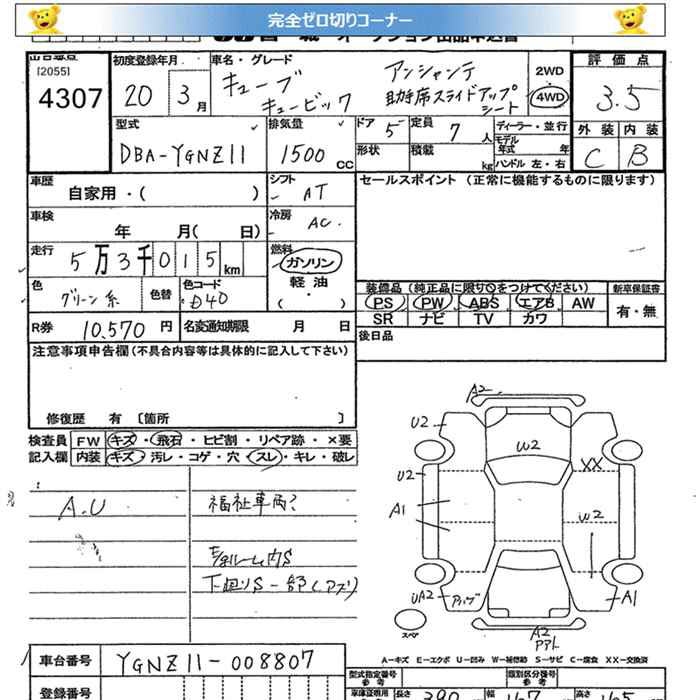 完全ゼロ切りコーナー
出品番号
[2055]
4307
初度登録年月
20年 3月
車名・グレード
キューブ
キュービック
アンシャンテ
助手席スライドアップ
シート
2WD
4WD
評価点
3.5
型式
DBA-YGNZ11
排気量
1500 CC
ドア 5
定員 7 人
形状
積載 kg
ディーラー・並行
モデル年式 年
ハンドル 左・右
外装 内装
C B
車歴
自家用・( )
シフト
AT
車検
年 月( 日)
冷房
AC.
走行
5万3千015km
燃料
ガソリン
軽油
( ・ )
色
グリーン系
色替
色コード
D40
R券 10,570 円
名変通知期限 月 日
セールスポイント (正常に機能するものに限ります)
装備品 (純正品に限り○をつけてください)
PS PW ABS エアB AW
SR ナビ TV カワ
新車保証書
有・無
後日品
注意事項申告欄(不具合内容等は具体的に記入して下さい)
修復歴 有 [箇所 ]
検査員
記入欄
FW キズ・飛石・ヒビ割・リペア跡・×要
内装 キズ・汚レ・コゲ・穴・スレ・キレ・破レ
A.U
福祉車両?
下廻りS一部(アブリ)
A2
U2
W2
U2
XX
A1
W2
UA2
A1
スペア
A2
A-キズ E-エクボ U-凹み W-補修跡 S-サビ C-腐食 XX-交換済
車台番号 YGNZ11-008807
登録番号
型式指定番号
参考
類別区分番号
参考
車庫証明用
参考
長さ 390
幅 167
高さ 165